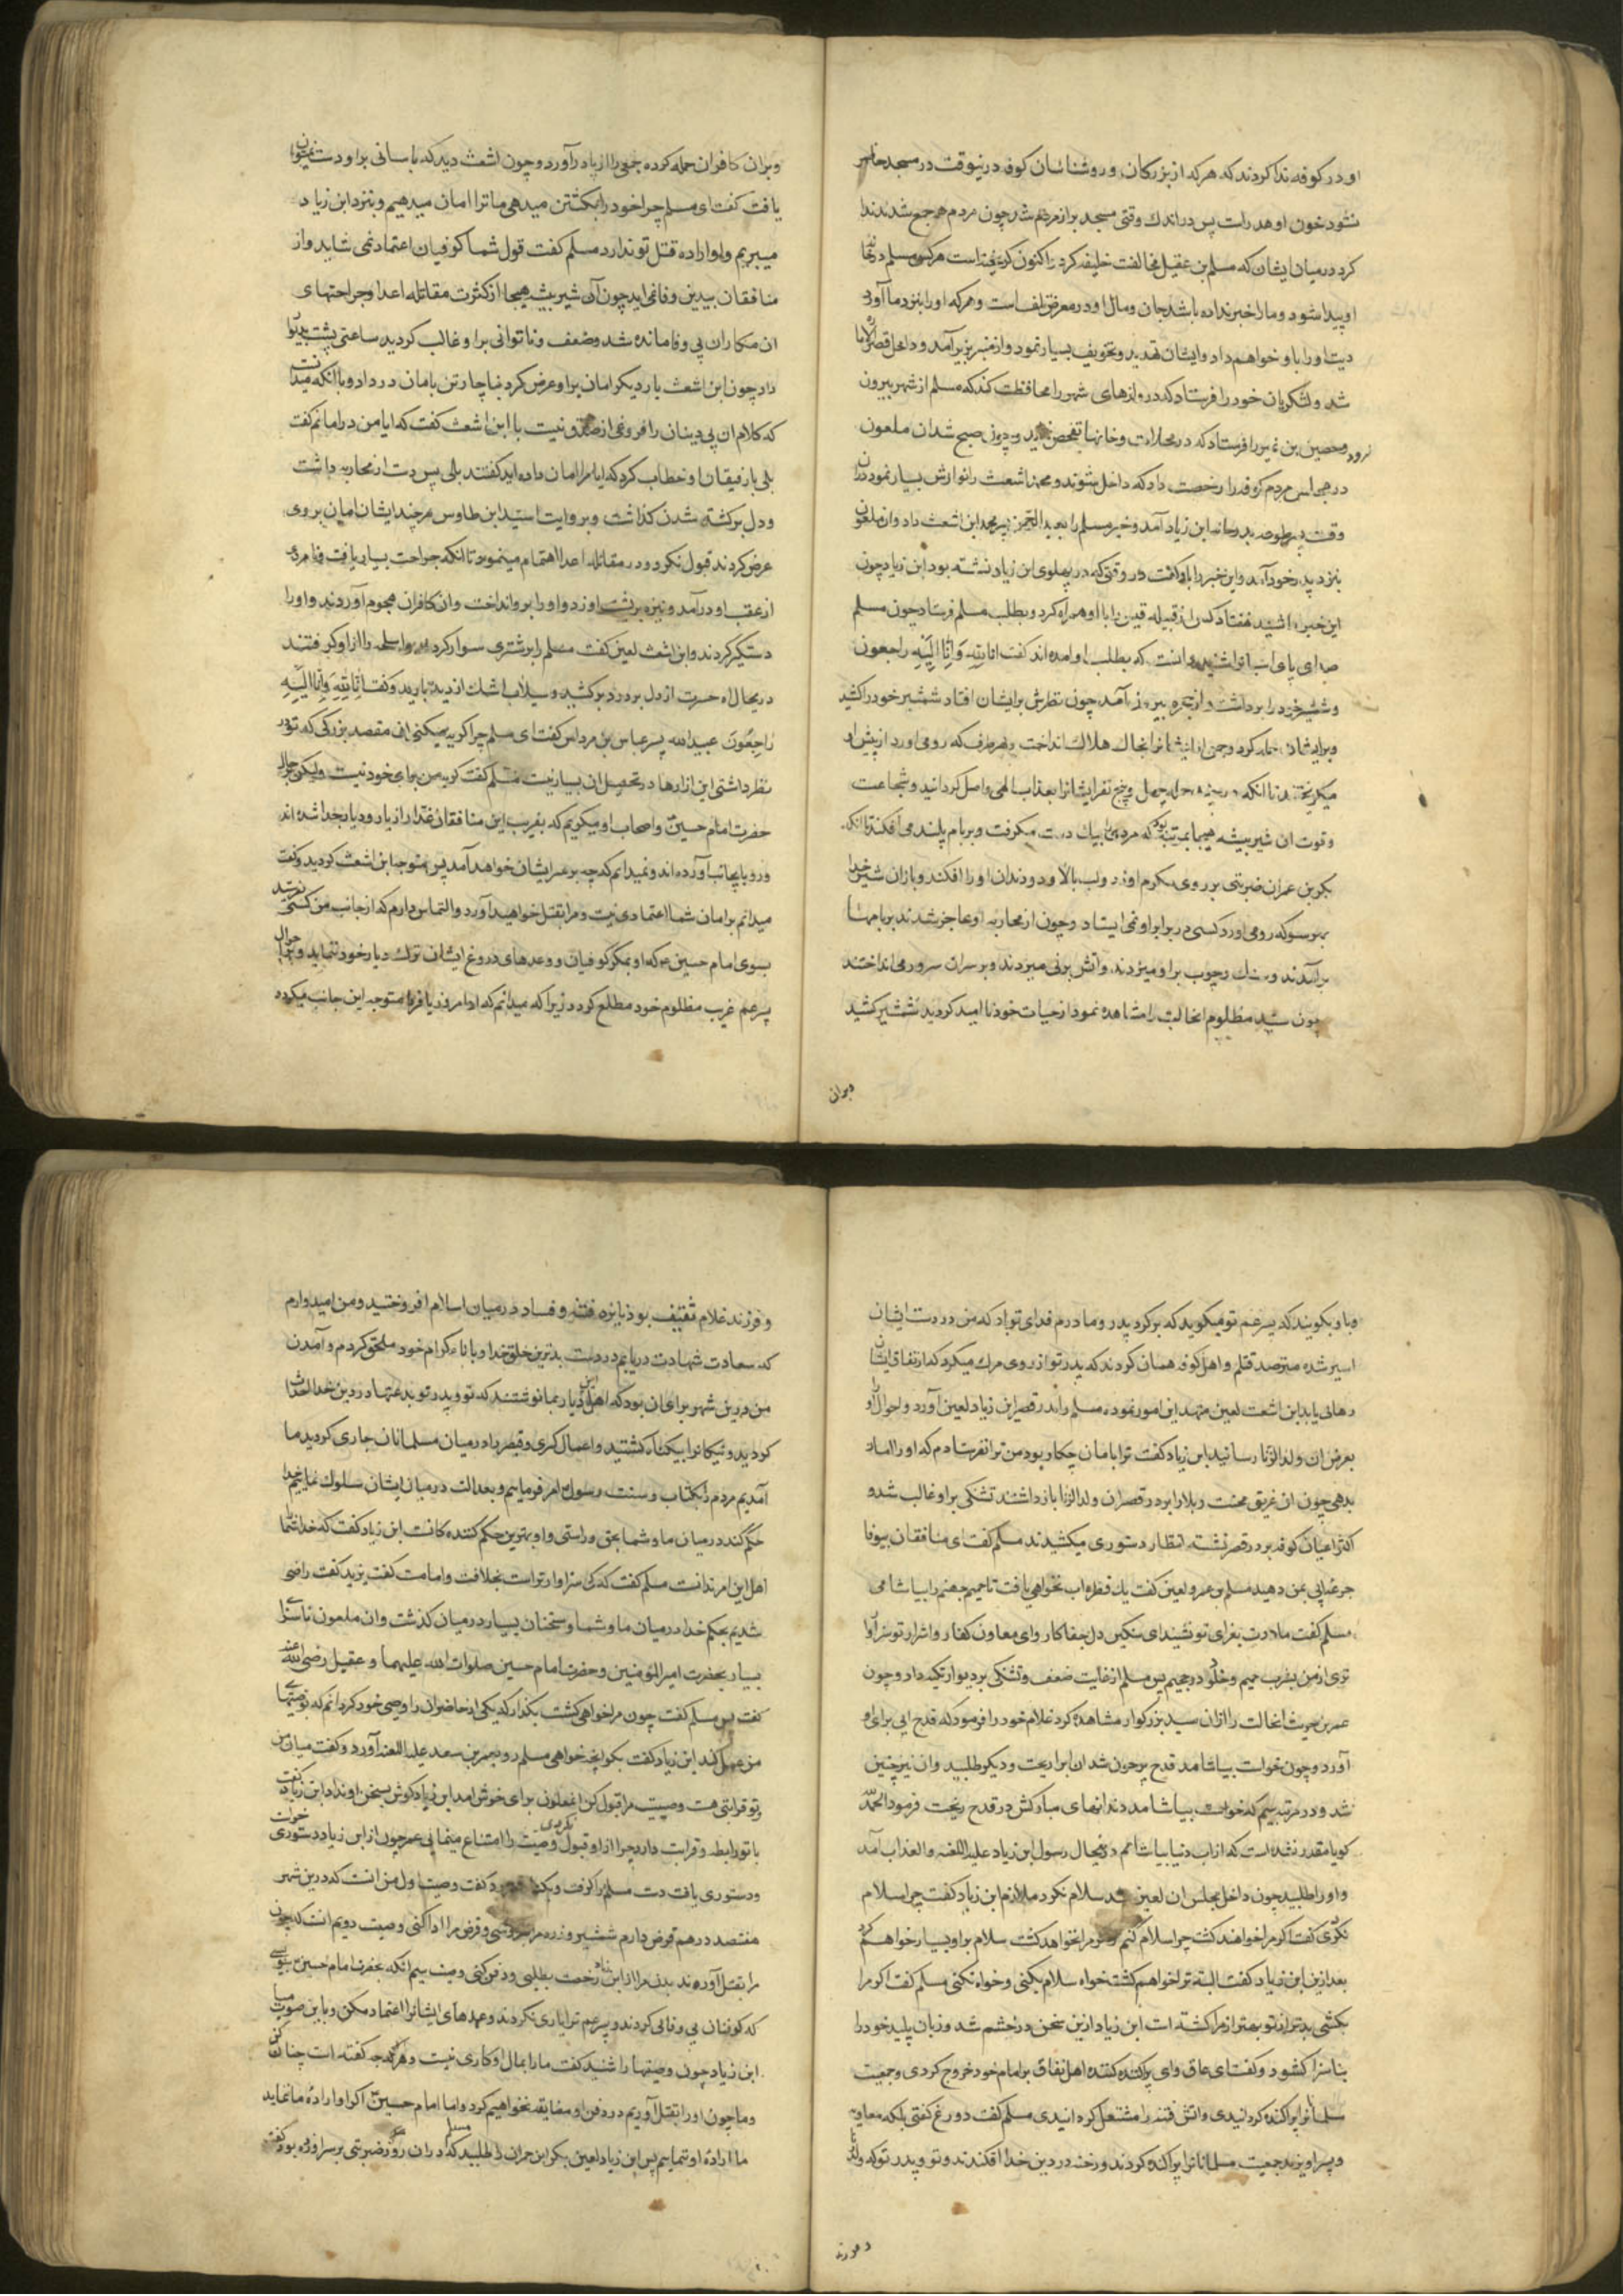 او در کوفه ندا کردند که هر که از بزرکان و روشناسان کوفه درینوقت در مسجد حاضر
نشود خون او هدر است پس در اندك وقتی مسجد پر از مردم شد چون مردم جمع شدند ندا
کرد در میان ایشان که مسلم بن عقیل مخالفت خلیفه کرد و اکنون کریخته است هر کس مسلم در خانه
او پیدا شود و ما را خبر نداده باشد جان و مال او در معرض تلف است و هر که او را بنزد ما آورد
دیت او را باو خواهم داد و ایشان تهدید و تخویف بسیار نمود و از منبر بزیر آمد و داخل قصر الاماره
شد و لشکریان خود را فرستاد که دروازهای شهر را محافظت کنند که مسلم از شهر بیرون
نرود و حصین بن نمیر را فرستاد که در محلات و خانها تفحص نماید و چون صبح شد ان ملعون
در مجلس مردم کوفه را رخصت داد که داخل شوند و محمد اشعث را نوازش بسیار نمود دران
وقت پسر طوعه بدر خانه ابن زیاد آمد و خبر مسلم را بعبد الرحمن پسر محمد ابن اشعث داد وان ملعون
بنزد پدر خود آمد و این خبر را باو گفت در وقتی که در پهلوی ابن زیاد نشسته بود ابن زیاد چون
این خبر را شنید هفتاد کس از قبیله قیس را با او همراه کرد و بطلب مسلم فرستاد چون مسلم
صدای پای اسبانرا شنید دانست که بطلب او امده اند گفت انا لله وَ اِنّا اِلَیهِ راجعون
و شمشیر خود را برداشت و از حجره بیرون آمد چون نظرش بر ایشان افتاد شمشیر خود را کشید
و بر ایشان حمله کرد و جمعی از ایشانرا بخاك هلاك انداخت و بهر طرف که رو می اورد از پیش او
میکریختند تا انکه در چند حمله چهل و پنج نفر ایشانرا بعذاب الهی واصل کردانید و شجاعت
و قوت ان شیر بیشه هیجا بمرتبه بود که مردی را بیك دست میکرفت و بر بام بلند می افکند تا انکه
بکر بن عمران ضربتی بر روی مکرم او زد و لب بالا و دو دندان او را افکند و باز ان شیر خدا
بهر سو که رو می اورد کسی در برابر او نمی ایستاد و چون از محاربه او عاجز شدند بر بامها
بر آمدند و سنك و چوب بر او میزدند و آتش بر نی میزدند و بر سر ان سرور می انداختند
چون سید مظلوم انحالت را مشاهده نمود از حیات خود نا امید کردید شمشیر کشید
و بران
و بران کافران حمله کرده جمعی را از پا در آورد و چون اشعث دید که باسانی بر او دست نمیتوان
یافت گفت ای مسلم چرا خود را بکشتن میدهی ما ترا امان میدهیم و بنزد ابن زیاد
میبریم و او اراده قتل تو ندارد مسلم گفت قول شما کوفیان اعتماد نمی شاید و از
منافقان بیدین وفا نمی اید چون آن شیر بیشه هیجا از کثرت مقاتله اعدا و جراحتهای
ان مکاران بی وفا مانده شد و ضعف و ناتوانی بر او غالب کردید ساعتی پشت بدیوار
داد چون ابن اشعث بار دیکر امان بر او عرض کرد بناچار تن بامان در داد و با انکه میدانست
که کلام ان بی دینان را فروغی از صدق نیست با ابن اشعث گفت که ایا من در امانم گفت
بلی با رفیقان او خطاب کرد که ایا مرا امان داده اید گفتند بلی پس دست از محاربه باز داشت
و دل بر کشته شدن کذاشت و بروایت اسید ابن طاوس هر چند ایشان امان بر وی
عرض کردند قبول نکرد و در مقاتله اعدا اهتمام مینمود تا انکه جراحت بسیار یافت و نامردی
از عقب او در آمد و نیزه بر پشت او زد و او را بر رو انداخت وان کافران هجوم آوردند و او را
دستکیر کردند و ابن اشعث لعین گفت مسلم را بر شتری سوار کرد و اسلحه را از او کرفتند
در یحال اه حسرت از دل پر درد بر کشید و سیلاب اشك از دیده بارید و گفت اِنّا لِلّهِ وَ اِنّا اِلَیهِ
رَاجِعُونَ عبید الله پسر عباس بن مرداس گفت ای مسلم چرا کریه میکنی ان مقصد بزرکی که تو در
نظر داشتی این ازارها در تحصیل ان بسیار نیست مسلم گفت کریه من برای خود نیست و لیکن بحال
حضرت امام حسین و اصحاب او میکریم که بفریب این منافقان غدار از یار و دیار جدا شده اند
و رو باینجانب آورده اند و نمیدانم که چه بر سر ایشان خواهد آمد پس متوجه ابن اشعث کردید و گفت
میدانم بر امان شما اعتمادی نیست و مرا بقتل خواهید آورد و التماس دارم که از جانب من کسی بفرستید
بسوی امام حسین که او بمکر کوفیان و وعدهای دروغ ایشان ترك دیار خود ننماید و بر احوال
پسر عم غریب مظلوم خود مطلع کردد زیرا که میدانم که او امروز یا فردا متوجه این جانب میکردد
و باو بکویند که پسر عم تو میکوید که بر کرد پدر و مادرم فدای تو باد که من در دست ایشان
اسیر شده مترصد قتلم و اهل کوفه همان کردند که پدر تو از روی مرك میکرد که از نفاق ایشان
رهائی یابد ابن اشعث لعین متعهد این امور نموده مسلم را بدر قصر ابن زیاد لعین آورد و احوال او
بعرض ان ولد الزنا رسانید ابن زیاد گفت ترا بامان چکار بود من ترا نفرستادم که او را امان
بدهی چون ان غریق محنت و بلا را بر در قصر ان ولد الزنا باز داشتند تشنکی بر او غالب شد و
اکثر اعیان کوفه بر در قصر نشسته انتظار دستوری میکشیدند مسلم گفت ای منافقان بیوفا
جرعه ابی بمن دهید مسلم بن عمرو لعین گفت یك قطره اب نخواهی یافت تا حمیم جهنم را بیاشامی
مسلم گفت مادرت بعزای تو نشیند ای سنکین دل جفا کار و ای معاون کفار و اشرار تو سزاوار
تری از من بشرب حمیم و خلود در جحیم پس مسلم از غایت ضعف و تشنکی بر دیوار تکیه داد و چون
عمر بن حریث انحالت را از ان سید بزرکوار مشاهده کرد غلام خود را فرمود که قدح ابی برای او
آورد و چون خواست بیاشامد قدح پر خون شد ان ابرا ریخت و دیکر طلبید و ان نیز چنین
شد و در مرتبه سیم که خواست بیاشامد دندانهای مبارکش در قدح ریخت فرمود الحمد لله
کویا مقدر نشده است که از اب دنیا بیاشامم در یحال رسول ابن زیاد علیه اللعنه و العذاب آمد
و او را طلبید چون داخل مجلس ان لعین شد سلام نکرد ملازم ابن زیاد گفت چرا سلام
نکردی گفت اکر مرا خواهند کشت چرا سلام کنم و اکر مرا نخواهد کشت سلام بر او بسیار خواهم کرد
بعد ازین ابن زیاد گفت البته ترا خواهم کشت خواه سلام بکنی و خواه نکنی مسلم گفت اکر مرا
بکشی بدتر از تو بهتر از مرا کشته است ابن زیاد ازین سخن در خشم شد و زبان پلید خود را
بناسزا کشود و گفت ای عاق و ای پراکنده کننده اهل نفاق بر امام خود خروج کردی و جمعیت
مسلمانانرا پراکنده کردانیدی و اتش فتنه را مشتعل کردانیدی مسلم گفت دروغ گفتی بلکه معاویه
و پسر او یزید جمعیت مسلمانانرا پراکنده کردند و رخنه در دین خدا افکندند و تو و پدر تو که ولد زنا
و فرزند
و فرزند غلام ثقیف بود نایره فتنه و فساد در میان اسلام افروختید و من امیدوارم
که سعادت شهادت دریابم در دست بدترین خلق خدا و باباء کرام خود ملحق کردم و آمدن
من درین شهر برای ان بود که اهل این دیار بما نوشتند که تو و پدر تو بدعتها در دین خدا احداث
کردید و نیکانرا بیکناه کشتید و اعمال کسری و قیصر را در میان مسلمانان جاری کردید ما
آمدیم مردم را بکتاب و سنت رسول امر فرمائیم و بعدالت در میان ایشان سلوك نمائیم خدا
حکم کند در میان ما و شما بحق و راستی و او بهترین حکم کننده کانست ابن زیاد گفت که خدا شما
اهل این امر ندانست مسلم گفت که کی سزاوار تراست بخلافت و امامت گفت یزید گفت راضی
شدیم بحکم خدا در میان ما و شما و سخنان بسیار در میان کذشت وان ملعون ناسزای
بسیار بحضرت امیر المؤمنین و حضرت امام حسین صلوات الله علیهما و عقیل رضی الله عنه
گفت پس مسلم گفت چون مرا خواهی کشت بکذار که یکی از حاضران را وصی خود کردانم که بوصیتهای
من عمل کند ابن زیاد گفت بکو انچه خواهی مسلم رو بعمر بن سعد علیه اللعنه آورد و گفت میان من
و تو قرابتی هست وصیت مرا قبول کن انملعون برای خوش امد ابن زیاد کوش بسخن او نداد ابن زیاد گفت
با تو رابطه و قرابت دارد چرا از او قبول نکردی وصیت را امتناع مینمایی عمر چون از ابن زیاد دستوری
و دستوری یافت دست مسلم را کرفت و گفت وصیت اول من انست که درین شهر
هفتصد درهم قرض دارم شمشیر و زره مرا بفروشی و قرض مرا ادا کنی وصیت دویم انست که چون
مرا بقتل آورند بدن مرا از ابن زیاد رخصت بطلبی و دفن کنی وصیت سیم انکه بحضرت امام حسین بنویسی
که کوفیان بی وفائی کردند و پسر عم ترا یاری نکردند و عهدهای ایشانرا اعتماد مکن و باین صوب میا
ابن زیاد چون وصیتها را شنید گفت ما را بمال او کاری نیست و هر چه گفته است چنان کن
و ما چون او را بقتل آوریم در دفن او مضایقه نخواهیم کرد و اما امام حسین اکر او اراده ما ننماید
ما اراده او ننماییم پس ابن زیاد لعین بکر ابن حمران را طلبید که در ان روز مسلم ضربتی بر سر او زده بود گفت